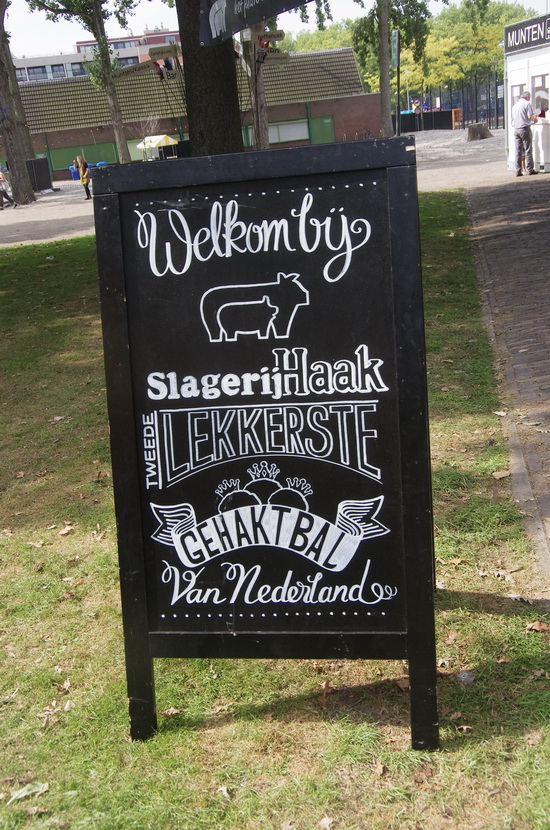 MUNTEN
Welkom bij
Slagerij Haak
TWEEDE
LEKKERSTE
GEHAKTBAL
Van Nederland